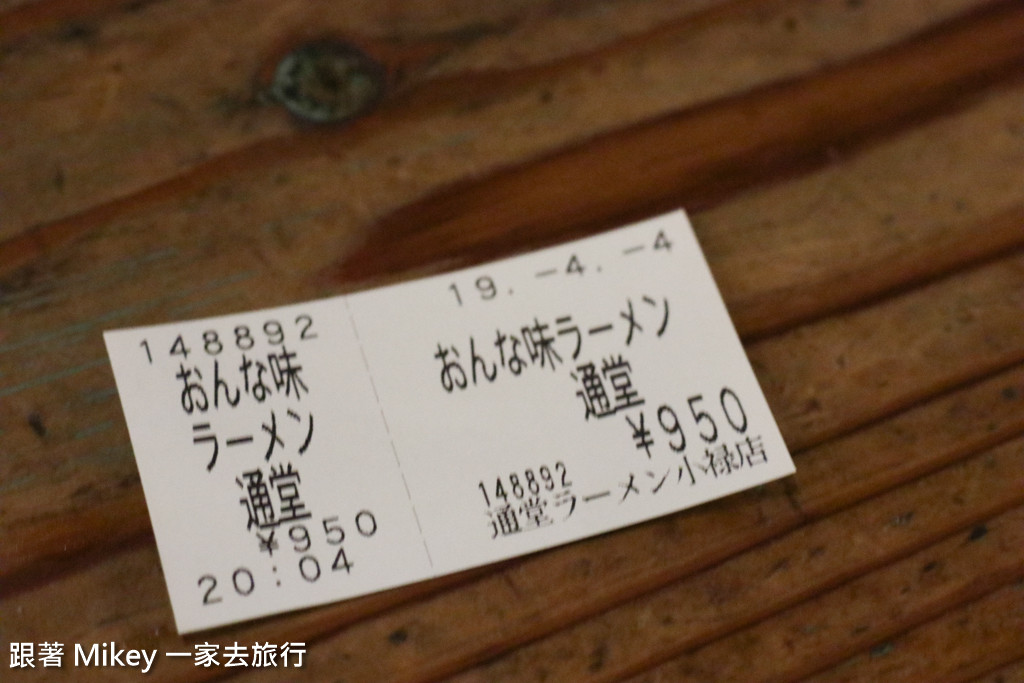 148892
おんな味
ラーメン
通堂
¥950
20:04
19.-4.-4
おんな味ラーメン
通堂
¥950
148892
通堂ラーメン小禄店
跟著 Mikey 一家去旅行